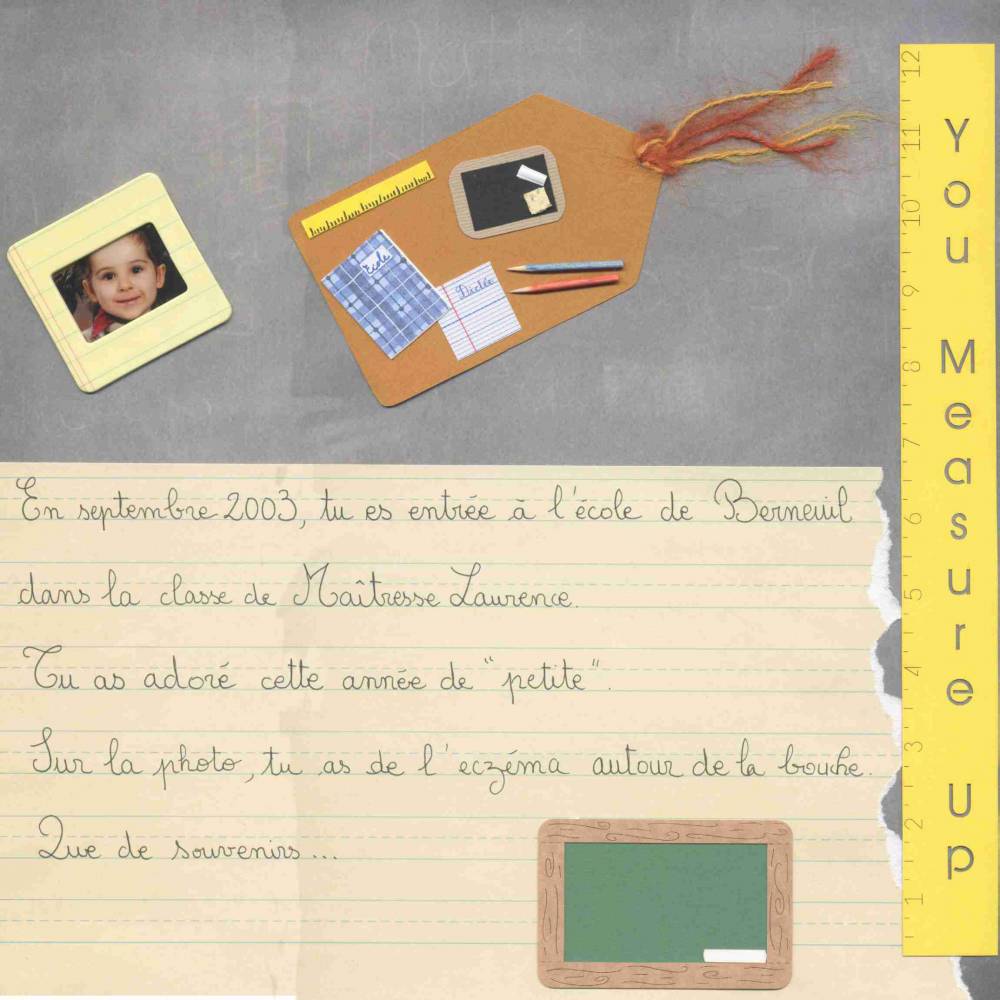 École
Dictée
En septembre 2003, tu es entrée à l'école de Berneuil
dans la classe de Maîtresse Laurence.
Tu as adoré cette année de "petite".
Sur la photo, tu as de l'eczéma autour de la bouche.
Que de souvenirs...
You Measure Up
12
11
10
9
8
7
6
5
4
3
2
1